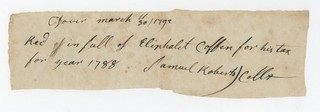 Dover march 30/1792
Recd in full of Eliphalet Coffin for his tax
for year 1788 Samuel Roberts Collr